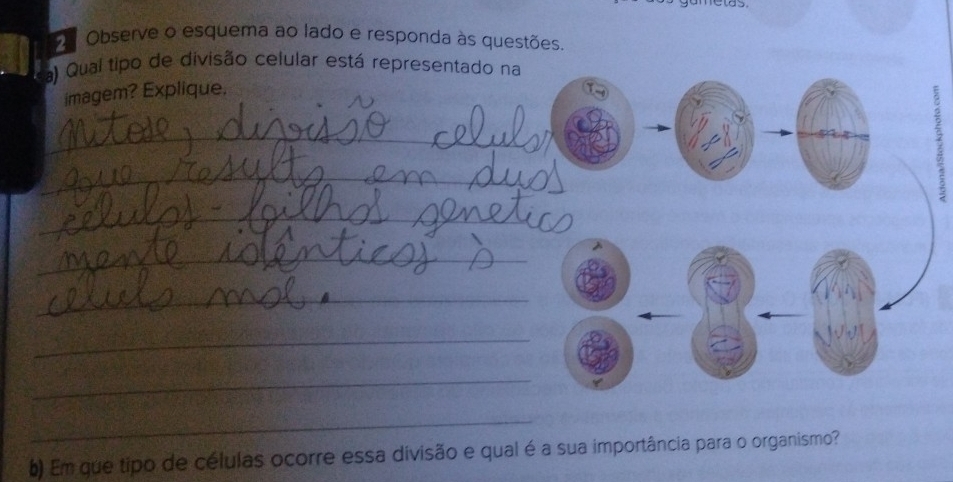 gametas.
2 Observe o esquema ao lado e responda às questões.
a) Qual tipo de divisão celular está representado na
imagem? Explique.
Mitose, divisão celular
que resulta em duas
células-filhas genetica
mente idênticas à
célula mãe.
Aldona/iStockphoto.com
b) Em que tipo de células ocorre essa divisão e qual é a sua importância para o organismo?